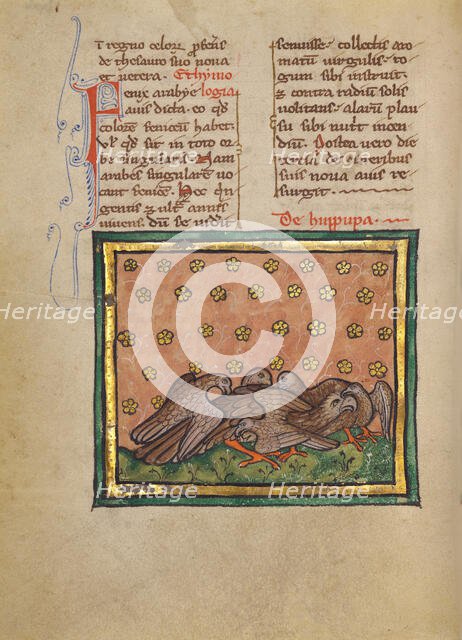 regno celorum profert
de thesauro suo noua
et uetera. Ethymo
Fenix arabye logia
auis dicta. eo quod
colorem feniceum habet.
uel quod sit in toto or
be singularis. Nam
arabes singularem uo
cant fenice. Hec quin
gentis et ultra annis
uiuens. dum se uiderit
senuisse. collectis aro
matum uirgulis. ro
gum sibi instruit.
et contra radium solis
uolitans. alarum plau
su sibi nutrit incen
dium. Postera uero die
de cineribus
suis noua auis re
surgit.
De huppupa.
Heritage
Heritage
Heritage
Heritage
Heritage
Heritage
Heritage
Heritage
C